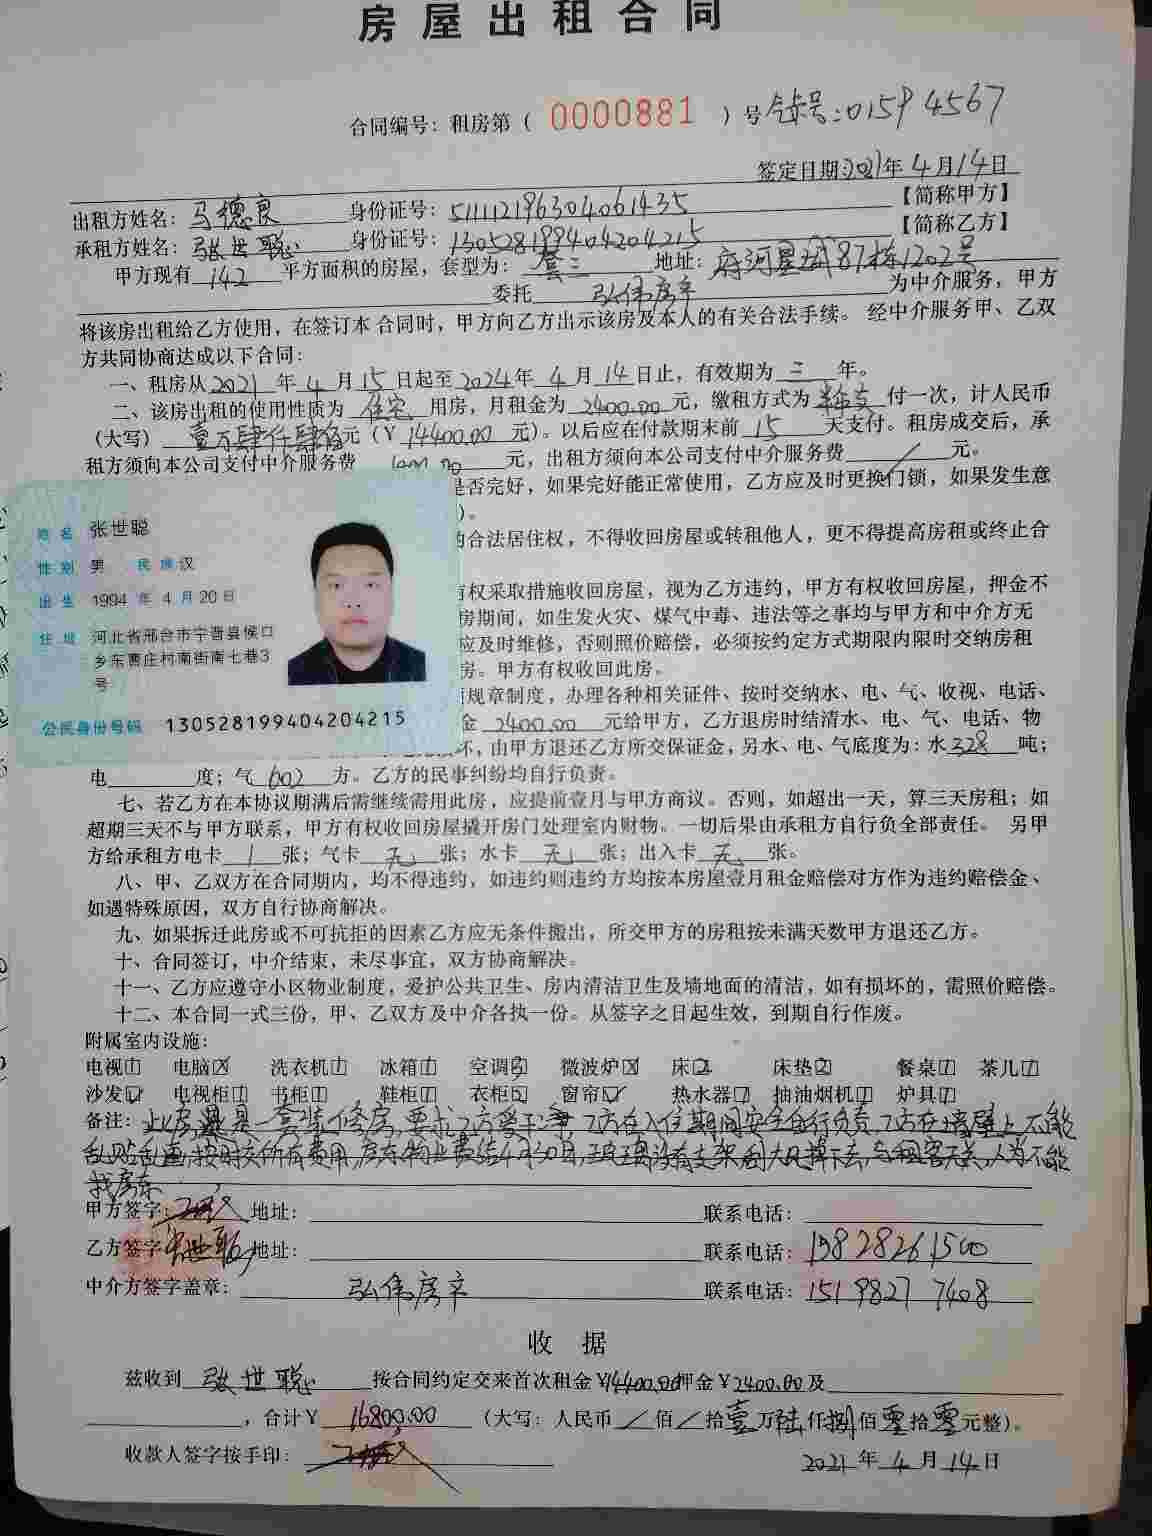 房屋出租合同
合同编号：租房第（ 0000881 ）号 气卡号：01594567
签定日期：2021年4月14日
出租方姓名：马德良 身份证号：511112196304061435 【简称甲方】
承租方姓名：张世聪 身份证号：130528199404204215 【简称乙方】
甲方现有 142 平方面积的房屋，套型为：套三 地址：府河星城87栋1202号
委托 弘伟房产 为中介服务，甲方
将该房出租给乙方使用，在签订本合同时，甲方向乙方出示该房及本人的有关合法手续。经中介服务甲、乙双
方共同协商达成以下合同：
一、租房从2021年4月15日起至2024年4月14日止，有效期为三年。
二、该房出租的使用性质为 住宅 用房，月租金为 2400.00 元，缴租方式为 半年支 付一次，计人民币
（大写） 壹万肆仟肆佰元（￥14400.00 元）。以后应在付款期末前 15 天支付。租房成交后，承
租方须向本公司支付中介服务费 元，出租方须向本公司支付中介服务费 / 元。
是否完好，如果完好能正常使用，乙方应及时更换门锁，如果发生意
）。
的合法居住权，不得收回房屋或转租他人，更不得提高房租或终止合
有权采取措施收回房屋，视为乙方违约，甲方有权收回房屋，押金不
房期间，如生发火灾、煤气中毒、违法等之事均与甲方和中介方无
应及时维修，否则照价赔偿，必须按约定方式期限内限时交纳房租
房。甲方有权收回此房。
规章制度，办理各种相关证件、按时交纳水、电、气、收视、电话、
金 2400.00 元给甲方，乙方退房时结清水、电、气、电话、物
坏，由甲方退还乙方所交保证金，另水、电、气底度为：水328吨；
姓名 张世聪
性别 男 民族 汉
出生 1994 年 4 月 20 日
住址 河北省邢台市宁晋县候口
乡东曹庄村南街南七巷3
号
公民身份号码 130528199404204215
电 度；气 602 方。乙方的民事纠纷均自行负责。
七、若乙方在本协议期满后需继续需用此房，应提前壹月与甲方商议。否则，如超出一天，算三天房租；如
超期三天不与甲方联系，甲方有权收回房屋撬开房门处理室内财物。一切后果由承租方自行负全部责任。 另甲
方给承租方电卡 1 张；气卡 无 张；水卡 无 张；出入卡 无 张。
八、甲、乙双方在合同期内，均不得违约，如违约则违约方均按本房屋壹月租金赔偿对方作为违约赔偿金、
如遇特殊原因，双方自行协商解决。
九、如果拆迁此房或不可抗拒的因素乙方应无条件搬出，所交甲方的房租按未满天数甲方退还乙方。
十、合同签订，中介结束，未尽事宜，双方协商解决。
十一、乙方应遵守小区物业制度，爱护公共卫生、房内清洁卫生及墙地面的清洁，如有损坏的，需照价赔偿。
十二、本合同一式三份，甲、乙双方及中介各执一份。从签字之日起生效，到期自行作废。
附属室内设施：
电视 电脑 洗衣机 冰箱 空调 微波炉 床 床垫 餐桌 茶几
沙发 电视柜 书柜 鞋柜 衣柜 窗帘 热水器 抽油烟机 炉具
备注：此房是一套装修房，要求乙方爱干净，乙方在入住期间安全自行负责，乙方在墙壁上不能
乱贴乱画，按时交所有费用，房东物业费结4月30日，玻璃没有支架刮大风掉下去，与租客无关，人为不能
找房东
甲方签字： 地址： 联系电话：
乙方签字 张世聪 地址： 联系电话：15828261500
中介方签字盖章： 弘伟房产 联系电话：15198277408
收 据
兹收到 张世聪 按合同约定交来首次租金￥14400.00押金￥2400.00及
，合计￥ 16800.00 （大写：人民币 / 佰 / 拾壹万陆仟捌佰零拾零元整）。
收款人签字按手印：
2021年4月14日